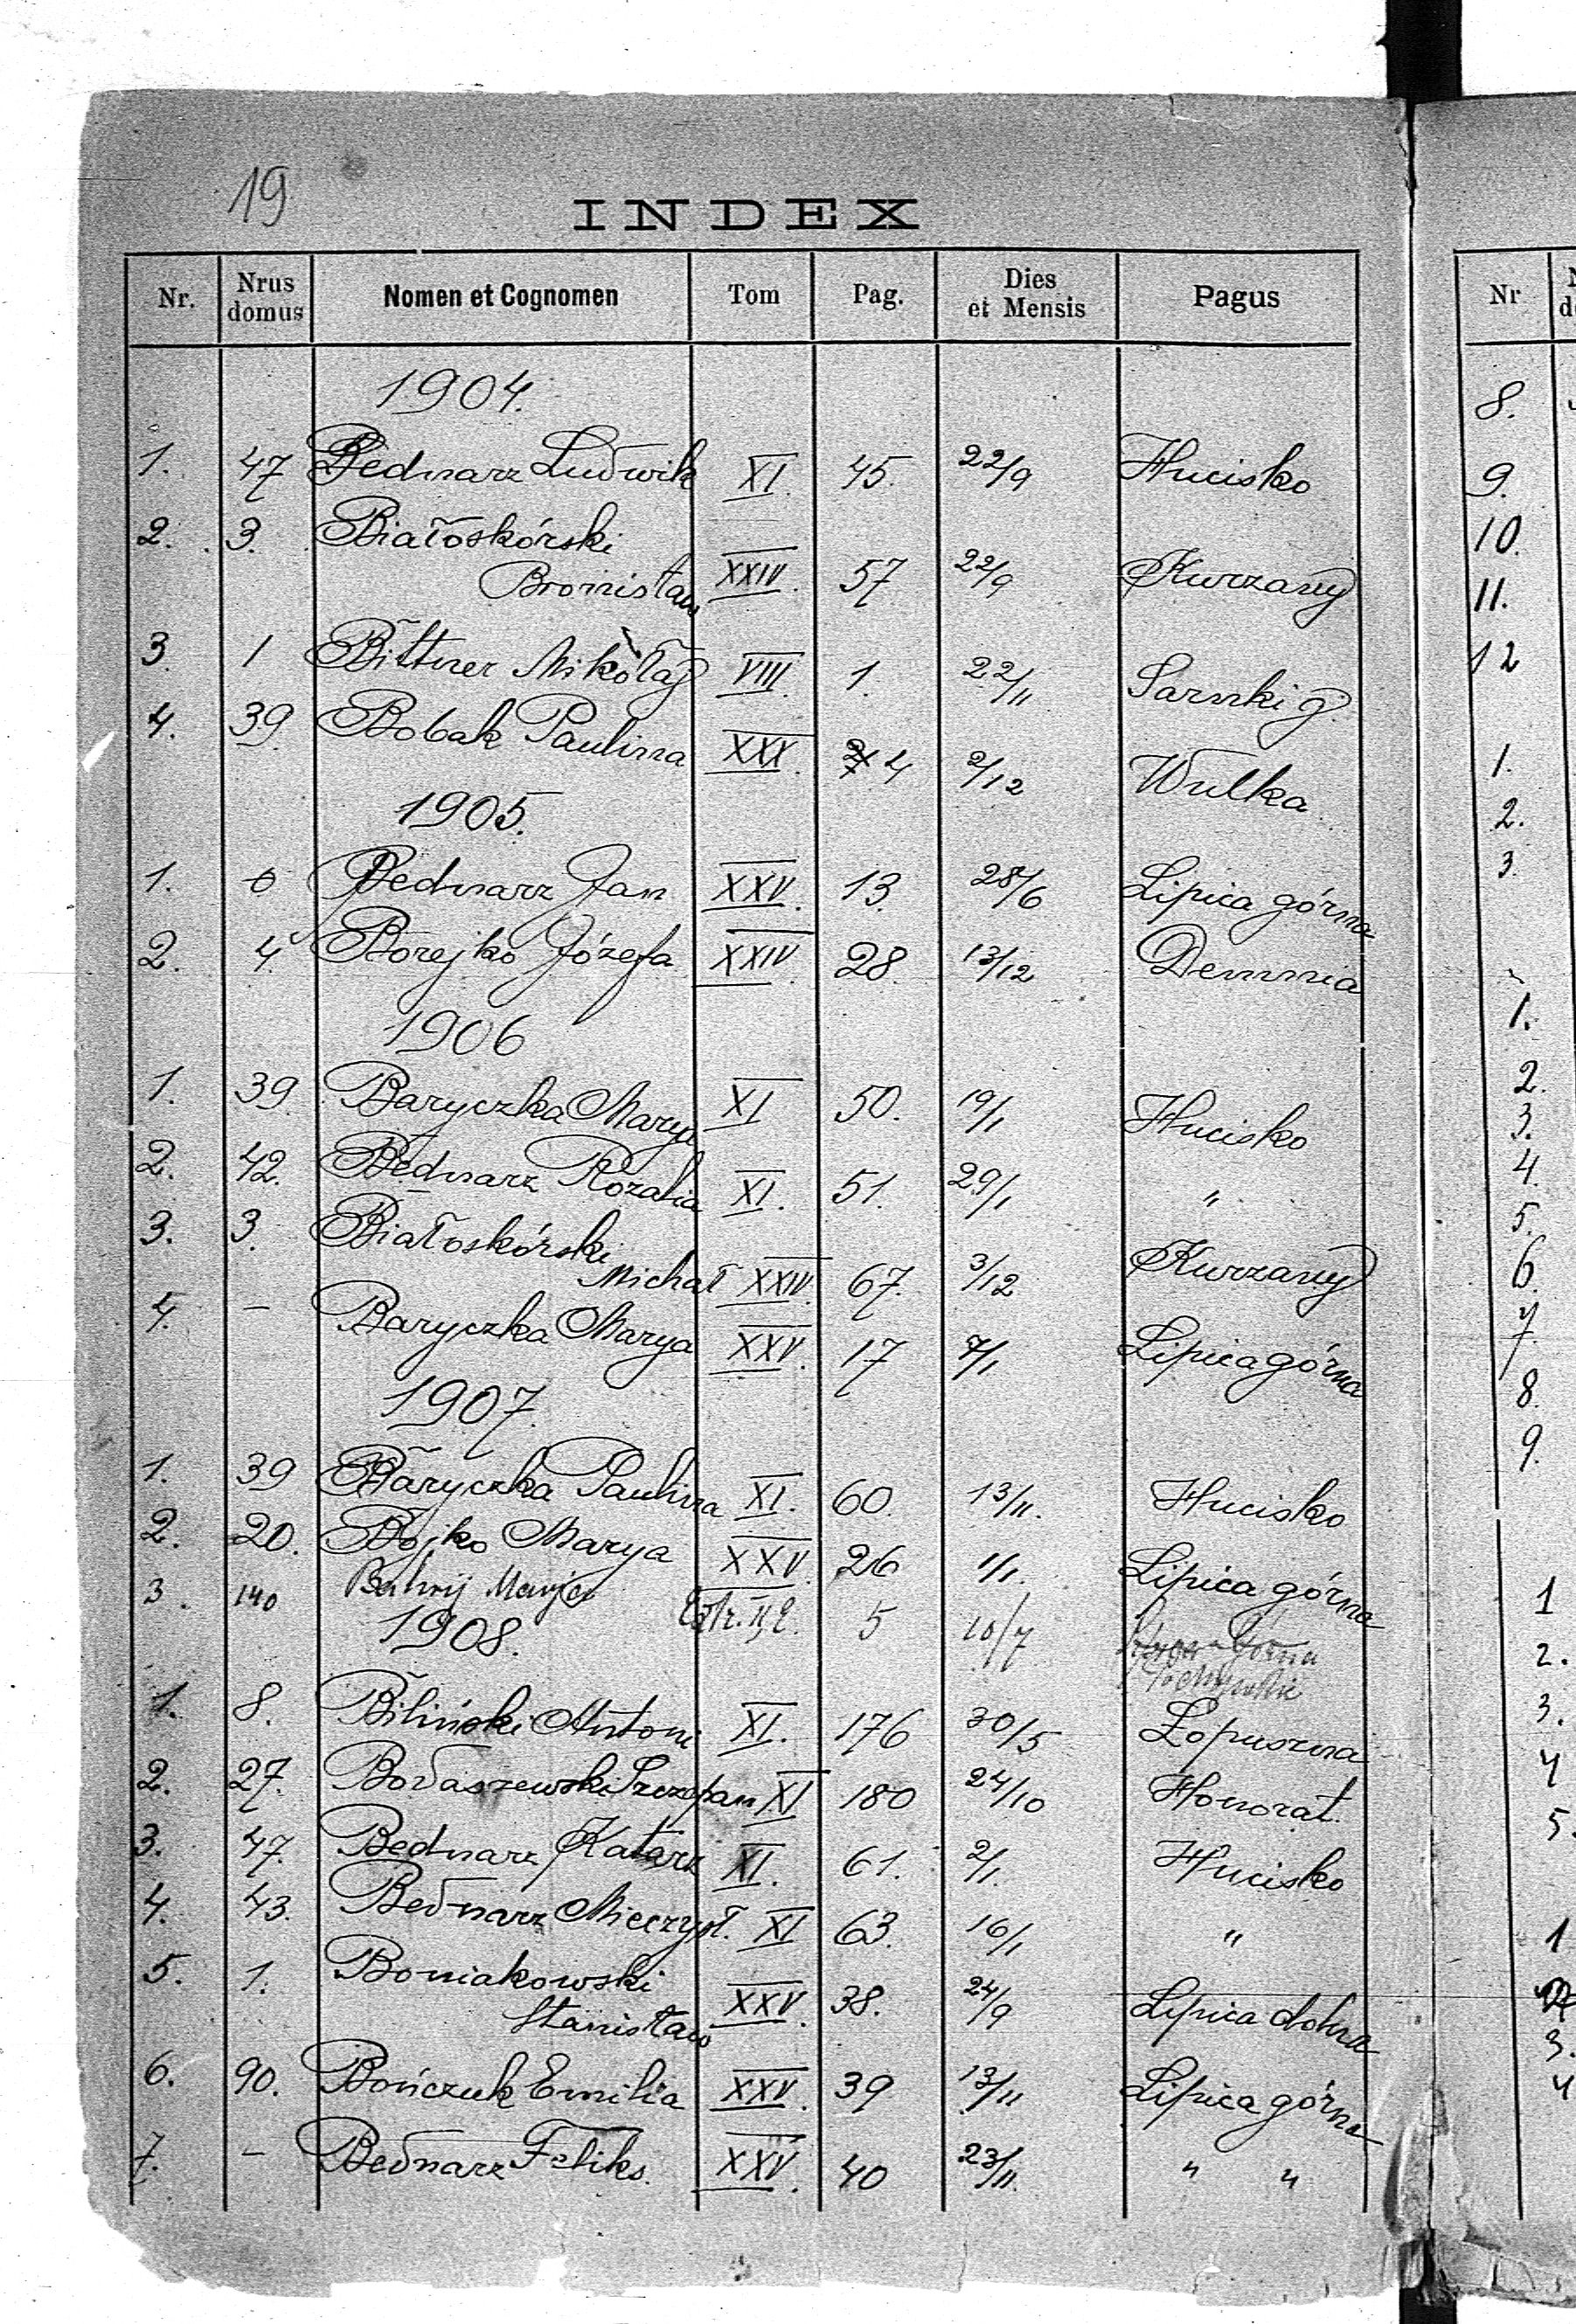 19
INDEX
Nr. Nrus domus Nomen et Cognomen Tom Pag. Dies et Mensis Pagus
1904.
1. 47 Bednarz Ludwik XI. 45. 22/9 Hucisko
2. 3. Białoskórski
Bronisław XXIV. 57 22/9 Kurzany
3. 1 Bittner Mikołaj VIII. 1. 22/11 Sarnki g.
4. 39. Bobak Paulina XXX. 4 2/12 Wulka
1905.
1. Bednarz Jan XXV. 13. 28/6 Lipica górna
2. 4. Borejko Józefa XXIV. 28. 13/12 Demnia
1906
1. 39. Baryczka Marya XI 50. 19/1 Hucisko
2. 42. Bednarz Rozalia XI. 51. 29/1 "
3. 3. Białoskórski
Michał XXIV. 67. 3/12 Kurzany
4. – Baryczka Marya XXV. 17 7/1 Lipica górna
1907.
1. 39 Baryczka Paulina XI. 60. 13/11. Hucisko
2. 20. Bojko Marya XXV. 26 1/1. Lipica górna
3. 140 5 10/7
1908.
1. 8. Biliński Antoni XI. 176 30/5 Łopuszna
2. 27. Bodaszewski Szczepan XI 180 24/10 Honorat.
3. 47. Bednarz Katarz XI. 61. 2/1. Hucisko
4. 43. Bednarz Mieczysł. XI 63. 16/1 "
5. 1. Boniakowski
Stanisław XXV. 38. 24/9 Lipica dolna
6. 90. Bończuk Emilia XXV. 39 13/11 Lipica górna
7. – Bednarz Feliks. XXV. 40 23/11. " "
Nr
8.
9.
10.
11.
12
1.
2.
3.
1.
2.
3.
4.
5.
6.
7.
8.
9.
1
2.
3.
4
5.
1
3.
4